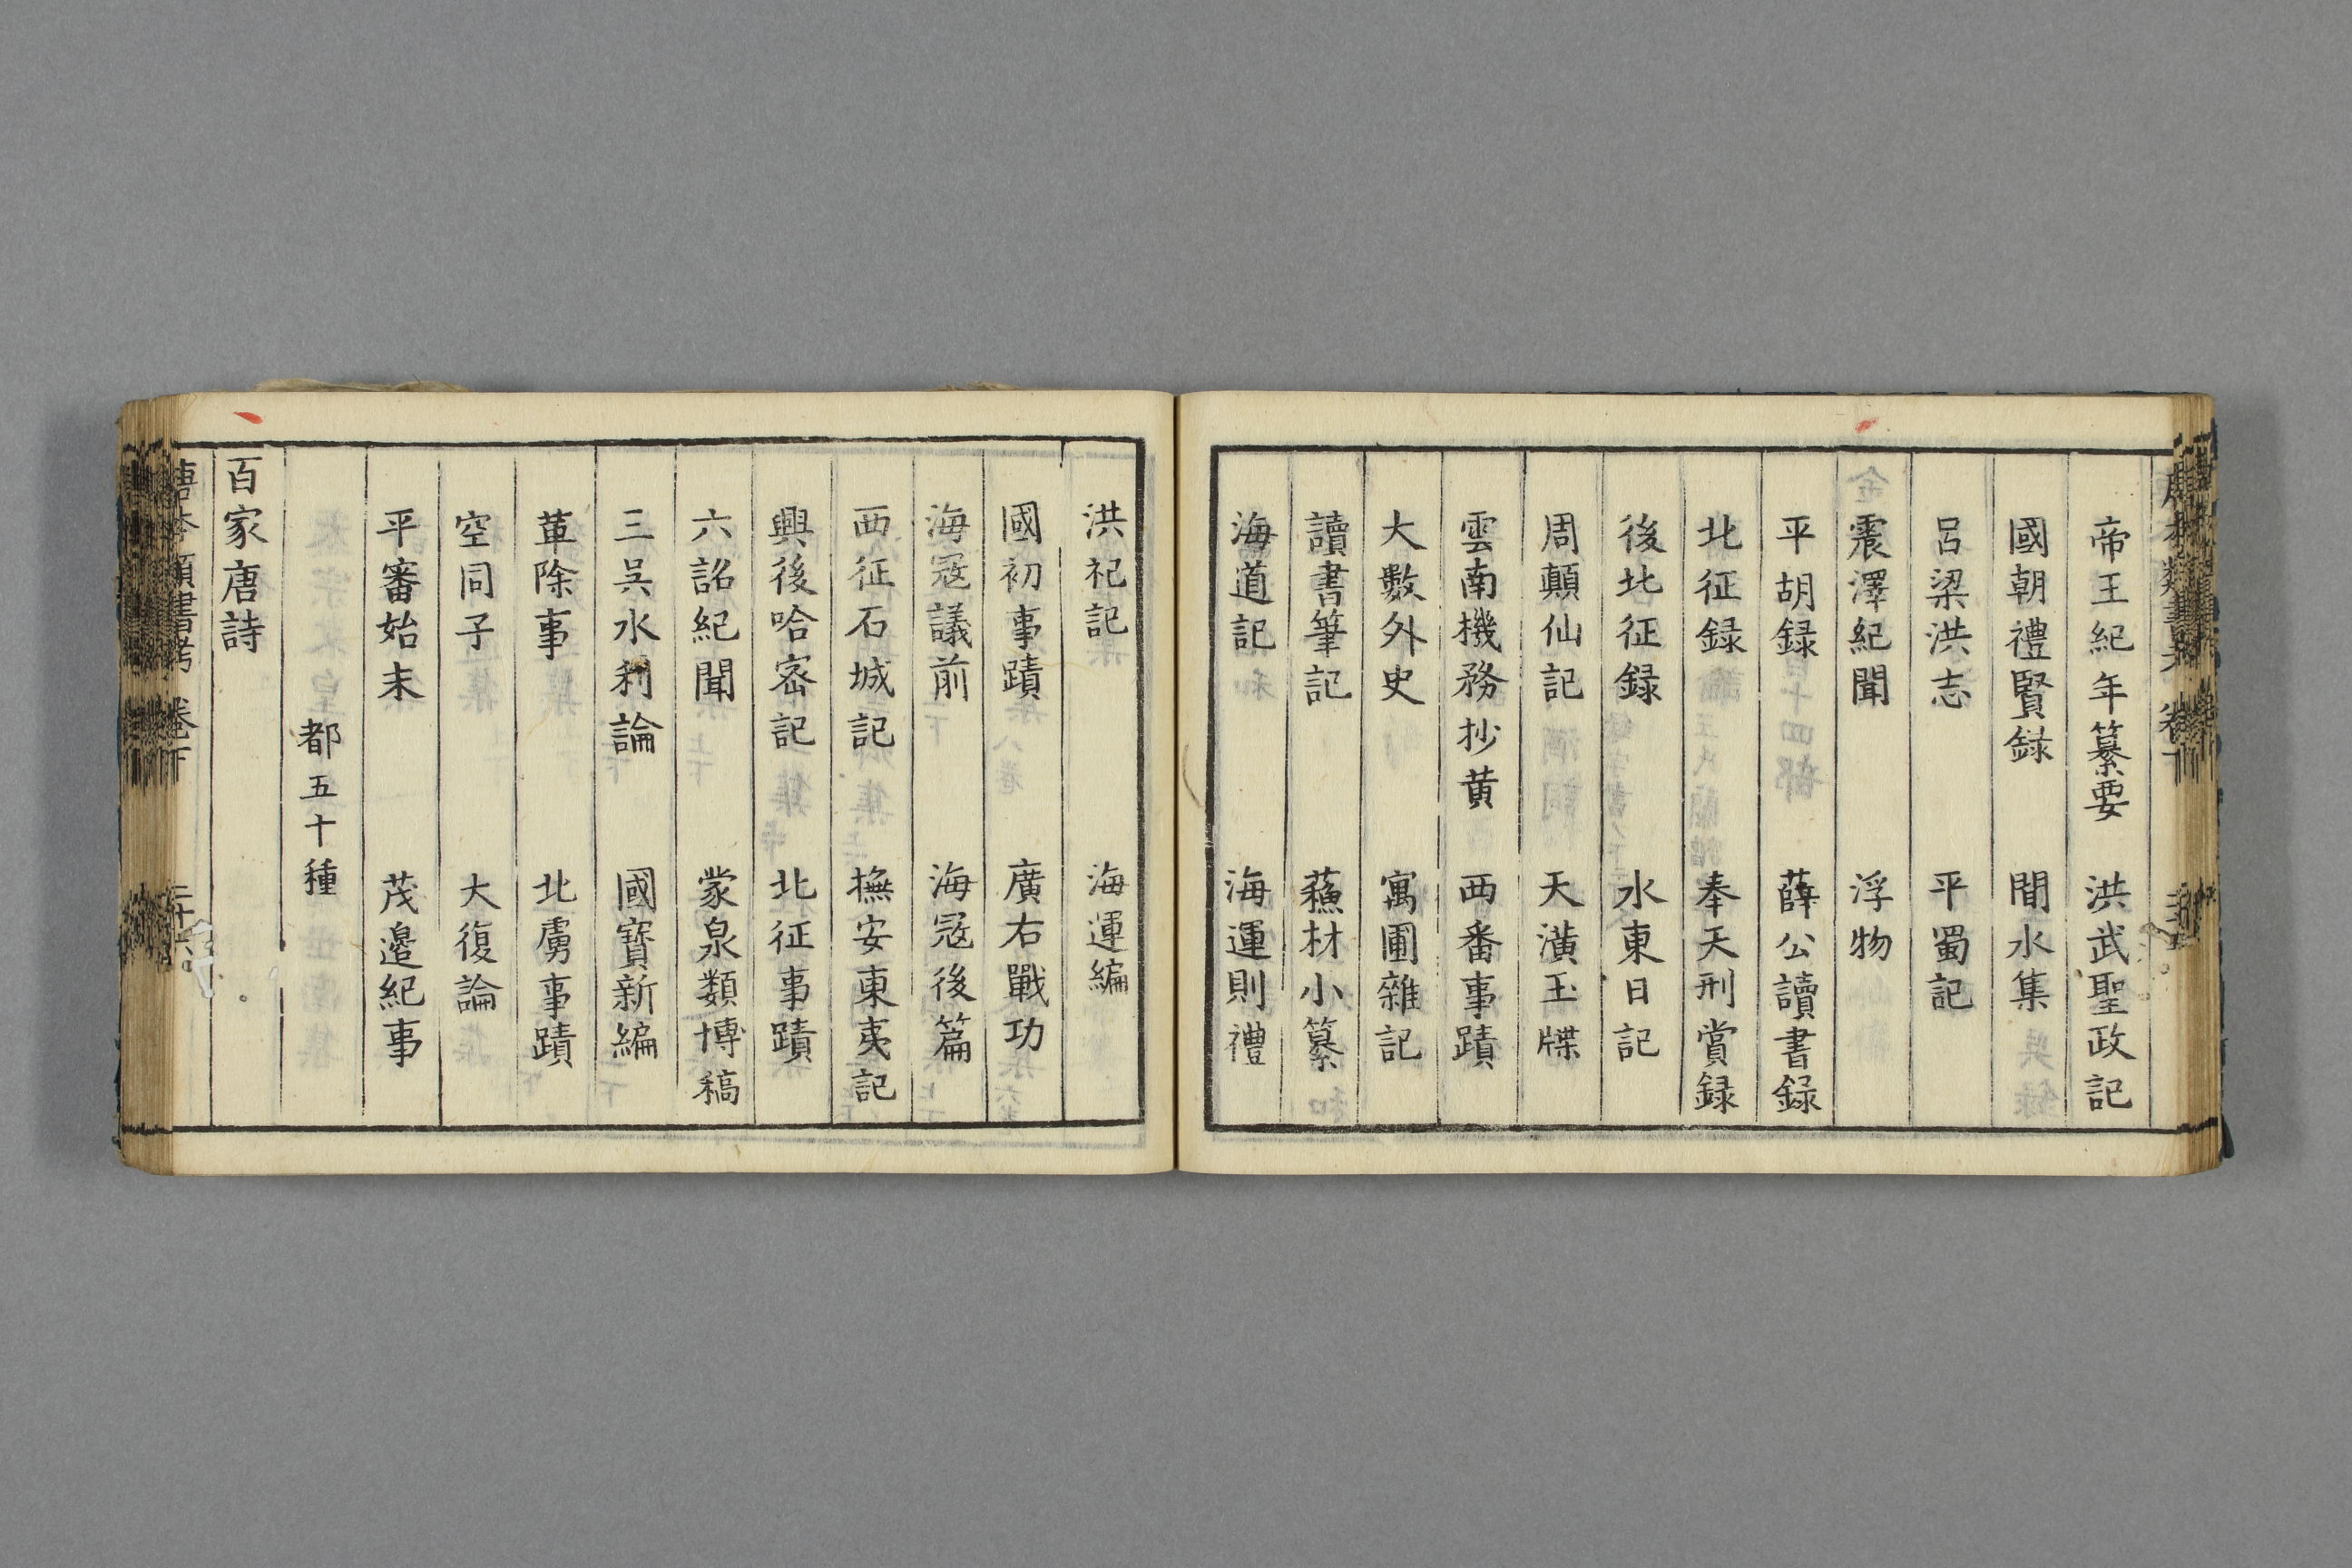 帝王紀年纂要　洪武聖政記
國朝禮賢録　閒水集
呂梁洪志　平蜀記
震澤紀聞　浮物
平胡録　薛公讀書録
北征録　奉天刑賞録
後北征録　水東日記
周顛仙記　天潢玉牒
雲南機務抄黄　西番事蹟
大數外史　寓圃雜記
讀書筆記　蘓材小纂
海道記　海運則禮
洪祀記　海運編
國初事蹟　廣右戰功
海寇議前　海寇後篇
西征石城記　撫安東夷記
興後哈宻記　北征事蹟
六詔紀聞　蒙泉類博稿
三吳水利論　國寶新編
革除事　北虜事蹟
空同子　大復論
平審始末　茂邉紀事
都五十種
百家唐詩
唐本類書考　卷下